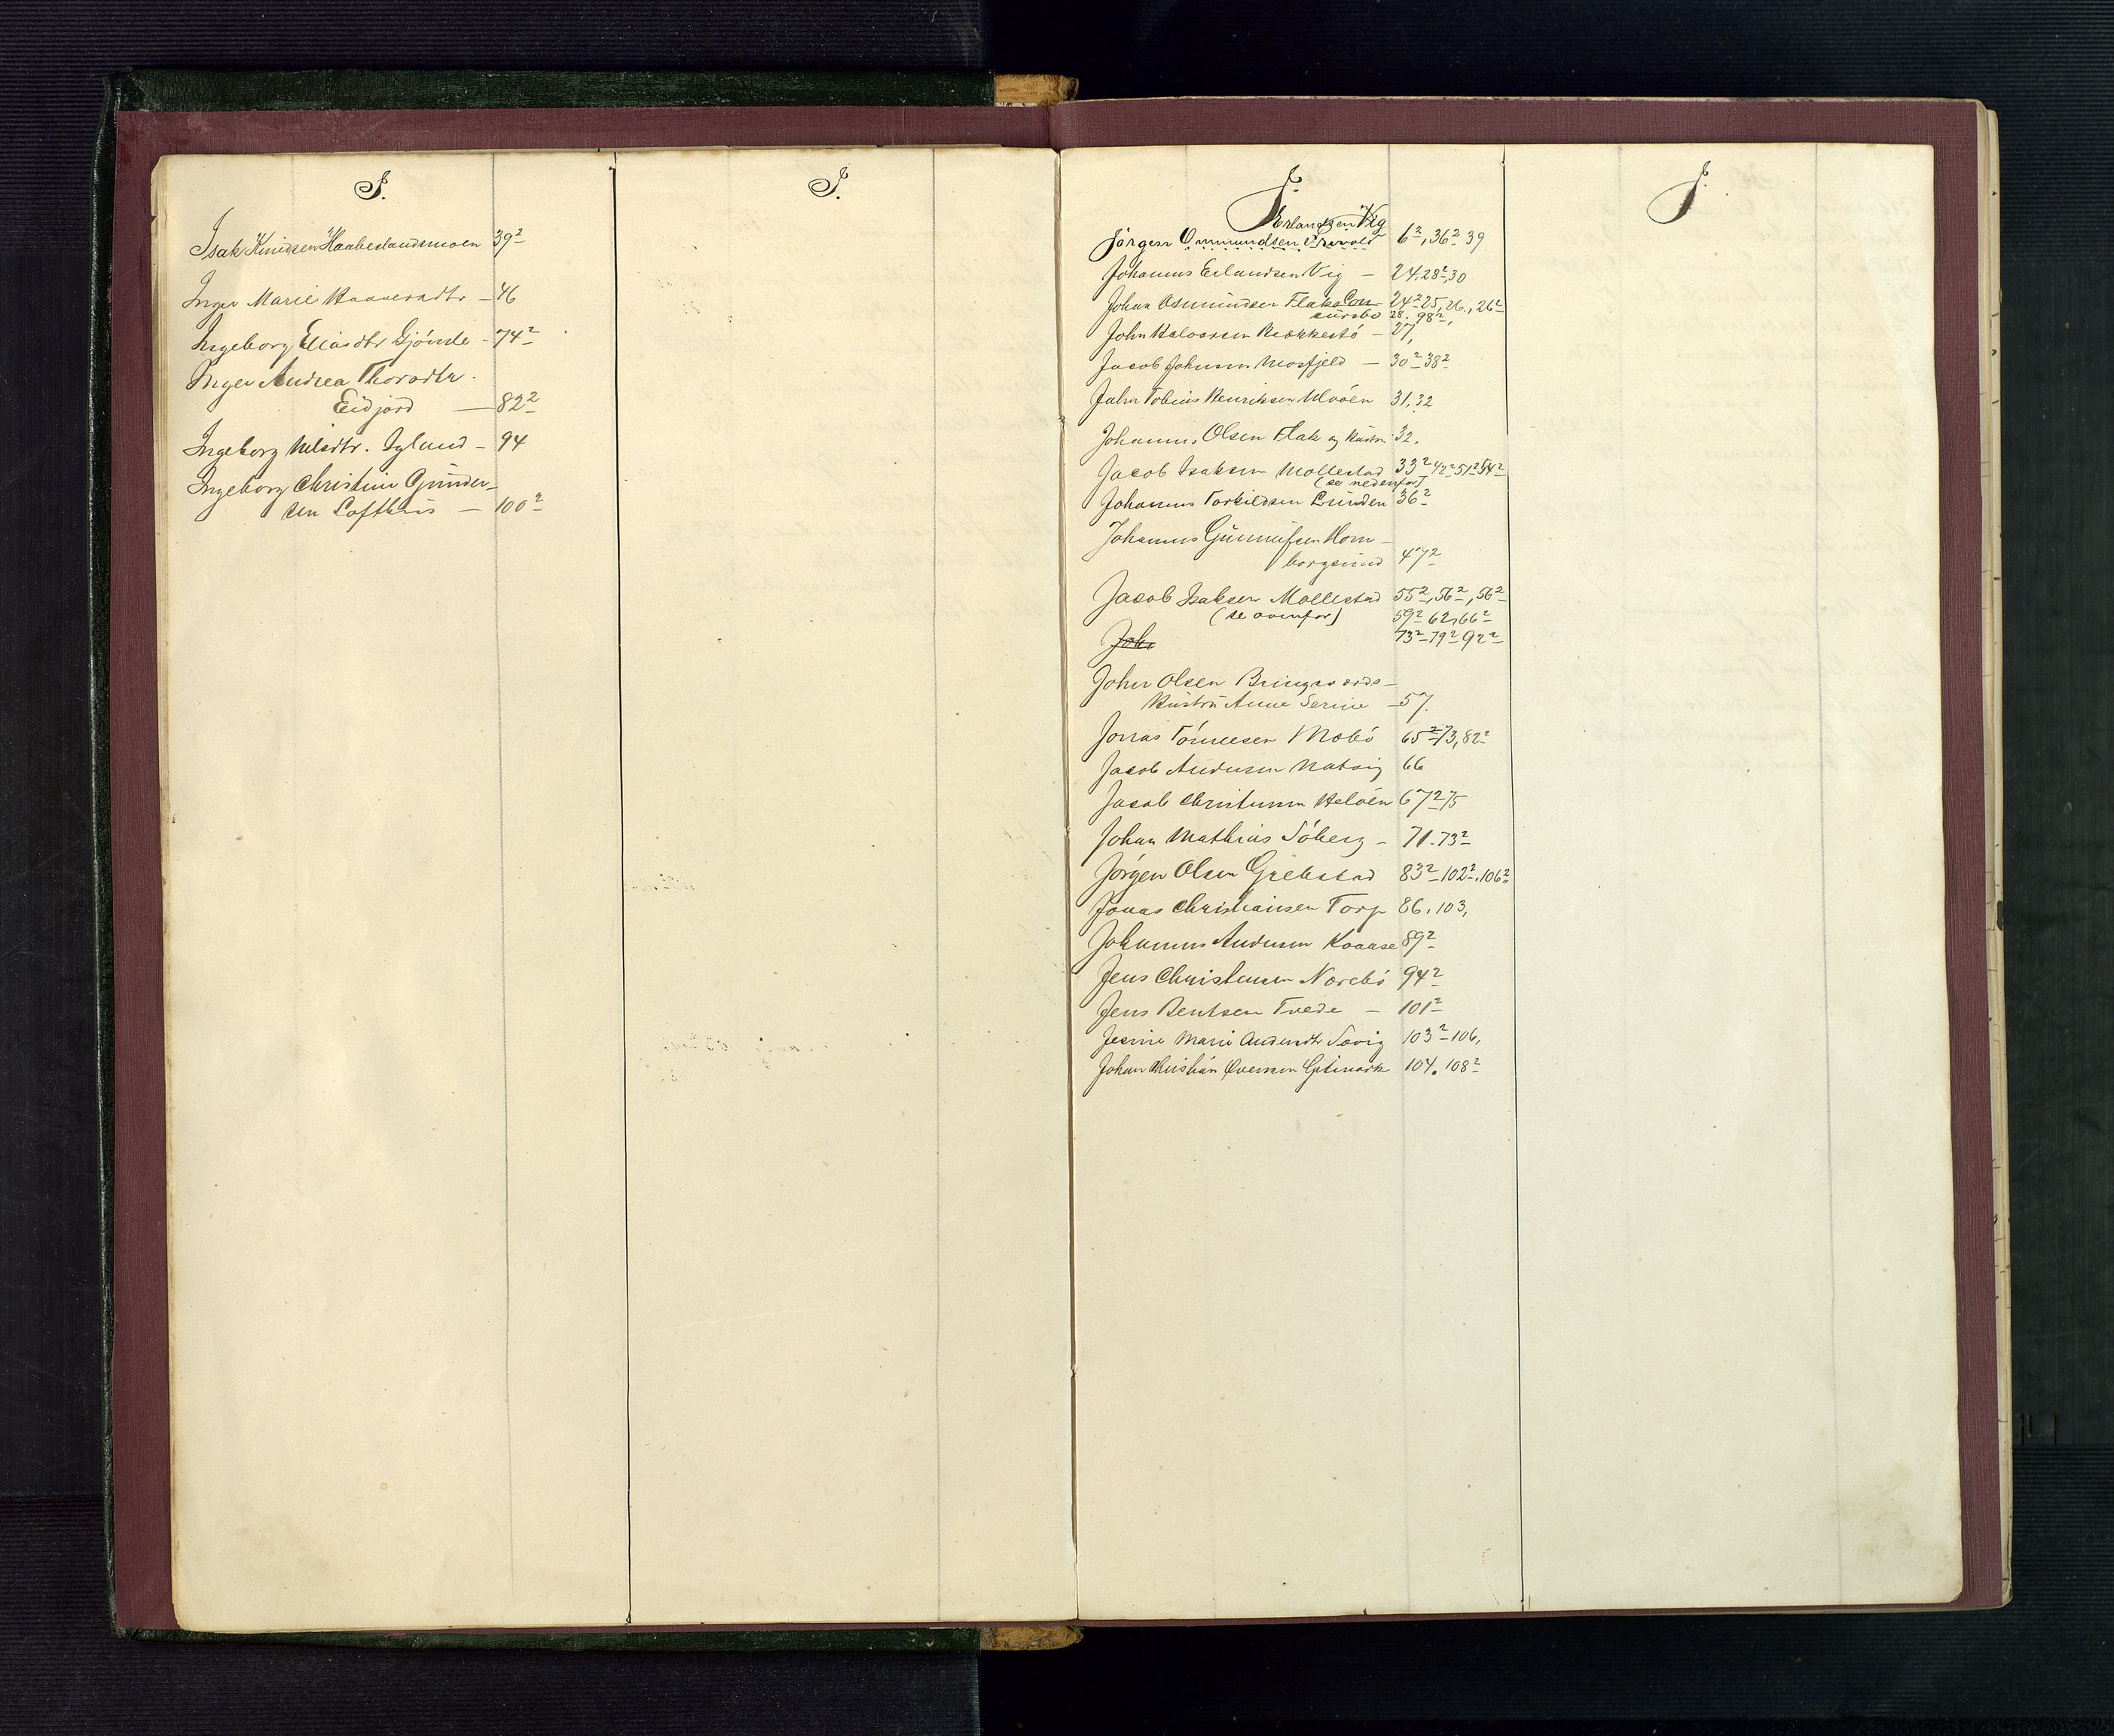 I.
Isak Knudsen Haabeslandsmoen 39²
Inger Marie Haaversdtr – 46
Ingeborg Eliasdtr Gjönde - 74²
Inger Andrea Thorsdtr.
Eidjord — 82²
Ingeborg Nilsdtr. Igland – 94
Ingeborg Christine Gunder-
sen Lofthus — 100²
I.
J.
Erlandsen Vig
Jörgen Ommundsen 6², 36² 39
Johannes Erlandsen Vig – 24, 28², 30
Johan Osmundsen Flak 24² 25, 26, 26²
28. 98²,
John Halvorsen – 27,
Jacob Johnsen Mosfjeld – 30² 38²
John Tobias Henriksen Ulvöen 31, 32
Johannes Olsen Flak og Hustru 32.
Jacob Isaksen Mollestad 33² 42² 51² 54²
(se nedenfor)
Johannes Torkildsen Lunden 36²
Johannes Gunnufsen Hom-
borgsund 47²
Jacob Isaksen Mollestad 55², 56², 56²
(se ovenfor) 59² 62, 66²
Joh 73² 79² 92²
John Olsen Bringsværds-
Hustru Anne Serine – 57.
Jonas Tönnesen Mobö 65² 73, 82²
Jacob Andersen Natvig 66
Jacob Christensen Helöen 67² 75
Johan Mathias Söberg – 71. 73²
Jörgen Olsen Grebstad 83² 102². 106²
Jonas Christiansen Torp 86, 103,
Johannes Andersen Kaaase 89²
Jens Christensen Nörebö 94²
Jens Bentsen Tvede – 101²
Jesine Marie Andersdtr Sævig 103² 106,
Johan Christian Evensen 104. 108²
J.